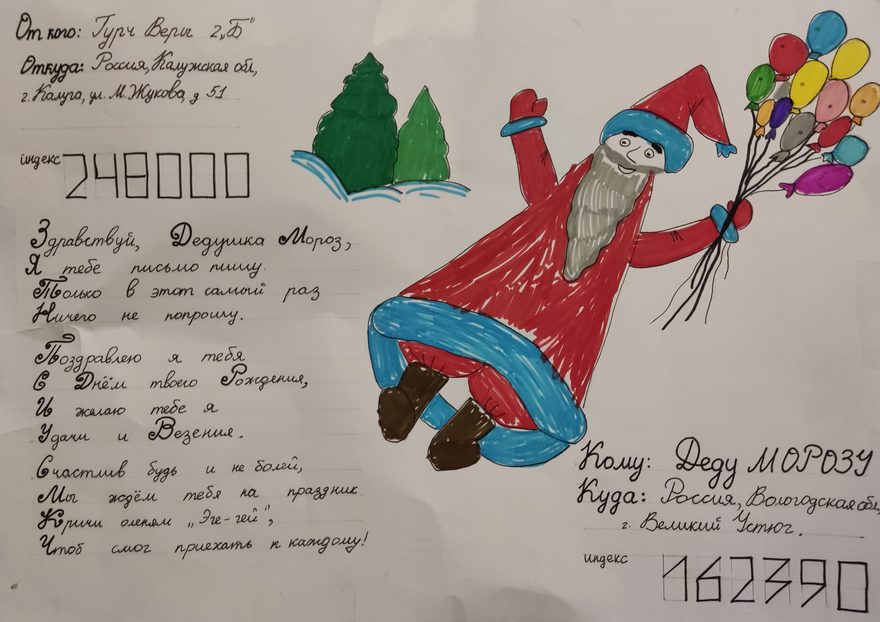 От кого: Гурч Веры 2„Б"
Откуда: Россия, Калужская обл,
г. Калуга, ул. М. Жукова, д 51
индекс 248000
Здравствуй, Дедушка Мороз,
Я тебе письмо пишу.
Только в этот самый раз
Ничего не попрошу.
Поздравлею я тебя
С Днём твоего Рождения,
И желаю тебе я
Удачи и Везения.
Счастлив будь и не болей,
Мы ждём тебя на праздник
Кричи оленям „Эге-гей",
Чтоб смог приехать к каждому!
Кому: Деду МОРОЗУ
Куда: Россия, Вологодская обл,
г. Великий Устюг.
индекс 162390